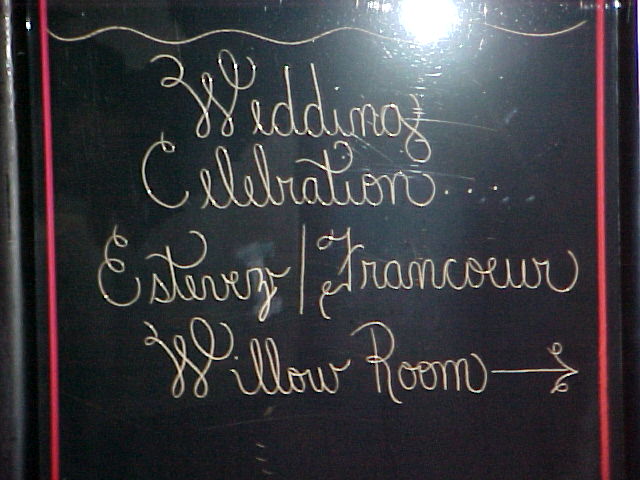 Wedding
Celebration....
Estevez/Francoeur
Willow Room →